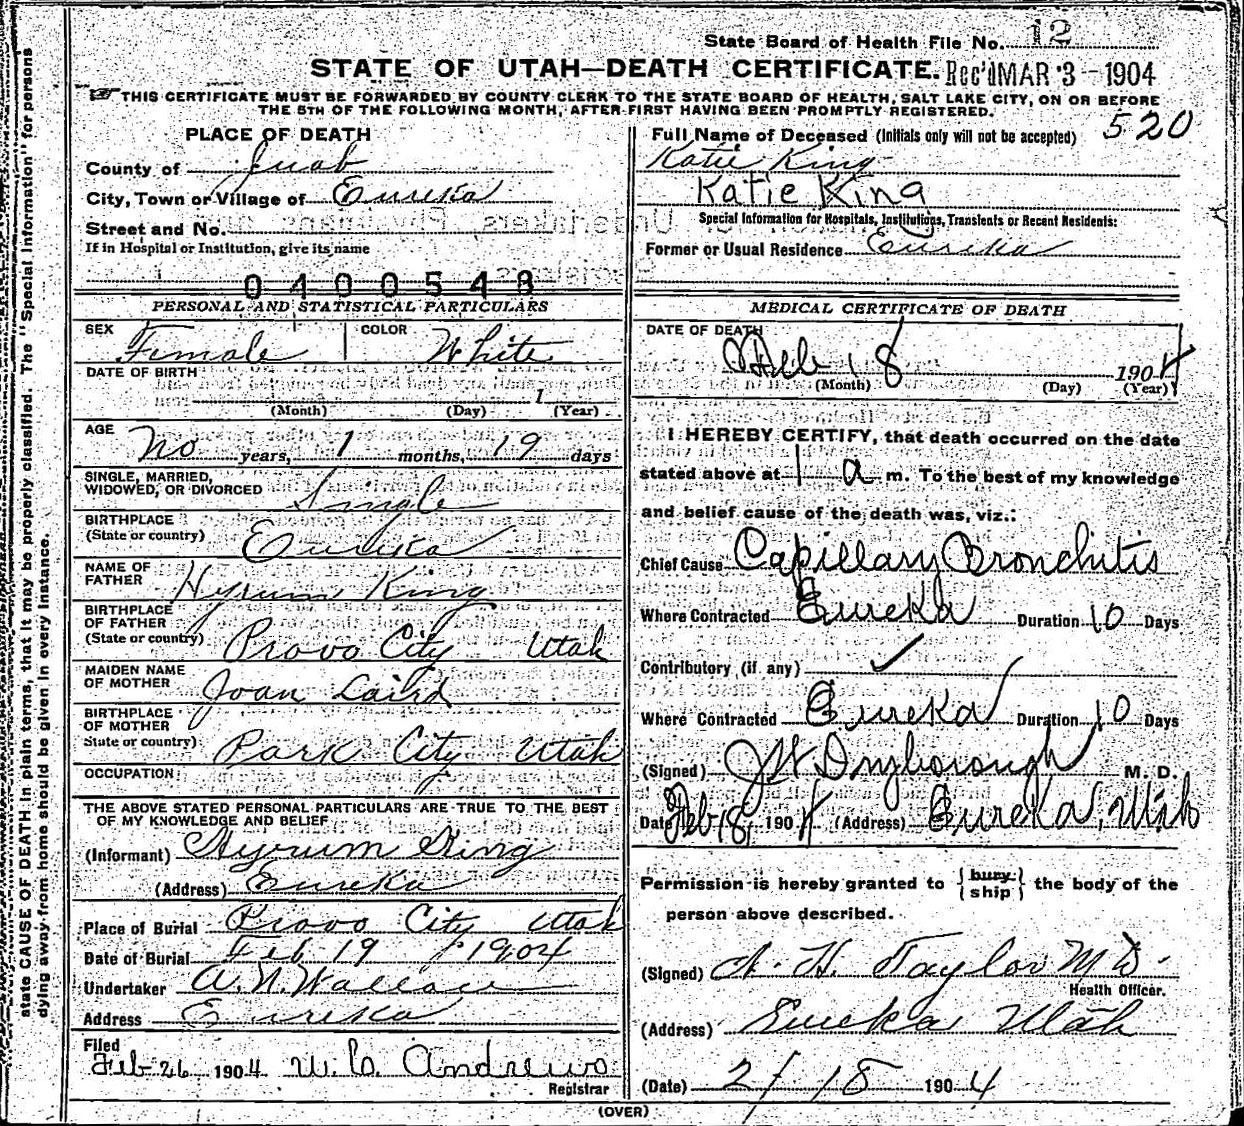 State Board of Health File No. 12
STATE OF UTAH—DEATH CERTIFICATE. Rec'd MAR 3 - 1904
THIS CERTIFICATE MUST BE FORWARDED BY COUNTY CLERK TO THE STATE BOARD OF HEALTH, SALT LAKE CITY, ON OR BEFORE
THE 5TH OF THE FOLLOWING MONTH, AFTER FIRST HAVING BEEN PROMPTLY REGISTERED.
520
PLACE OF DEATH
County of Juab
City, Town or Village of Eureka
Street and No.
If in Hospital or Institution, give its name
0400548
PERSONAL AND STATISTICAL PARTICULARS
SEX Female COLOR White
DATE OF BIRTH
1
(Month) (Day) (Year)
AGE No years, 1 months, 19 days
SINGLE, MARRIED,
WIDOWED, OR DIVORCED Single
BIRTHPLACE
(State or country) Eureka
NAME OF
FATHER Hyrum King
BIRTHPLACE
OF FATHER
(State or country) Provo City Utah
MAIDEN NAME
OF MOTHER Joan Laird
BIRTHPLACE
OF MOTHER
State or country) Park City Utah
OCCUPATION
THE ABOVE STATED PERSONAL PARTICULARS ARE TRUE TO THE BEST
OF MY KNOWLEDGE AND BELIEF
(Informant) Hyrum King
(Address) Eureka
Place of Burial Provo City Utah
Date of Burial Feb 19 1904
Undertaker A. N. Wallace
Address Eureka
Filed
Feb 26 1904 W. C. Andrews
Registrar
Full Name of Deceased (Initials only will not be accepted)
Katie King
Katie King
Special Information for Hospitals, Institutions, Transients or Recent Residents:
Former or Usual Residence Eureka
MEDICAL CERTIFICATE OF DEATH
DATE OF DEATH
Feb 18 1904
(Month) (Day) (Year)
I HEREBY CERTIFY, that death occurred on the date
stated above at 1 a m. To the best of my knowledge
and belief cause of the death was, viz.:
Chief Cause Capillary Bronchitis
Where Contracted Eureka Duration 10 Days
Contributory (if any) ✓
Where Contracted Eureka Duration 10 Days
(Signed) M. D.
Date Feb 18, 1904 (Address) Eureka, Utah
Permission is hereby granted to { bury
ship } the body of the
person above described.
(Signed) Taylor M D.
Health Officer.
(Address) Eureka Utah
(Date) 2/18 1904
(OVER)
state CAUSE OF DEATH in plain terms, that it may be properly classified. The "Special Information" for persons
dying away from home should be given in every instance.